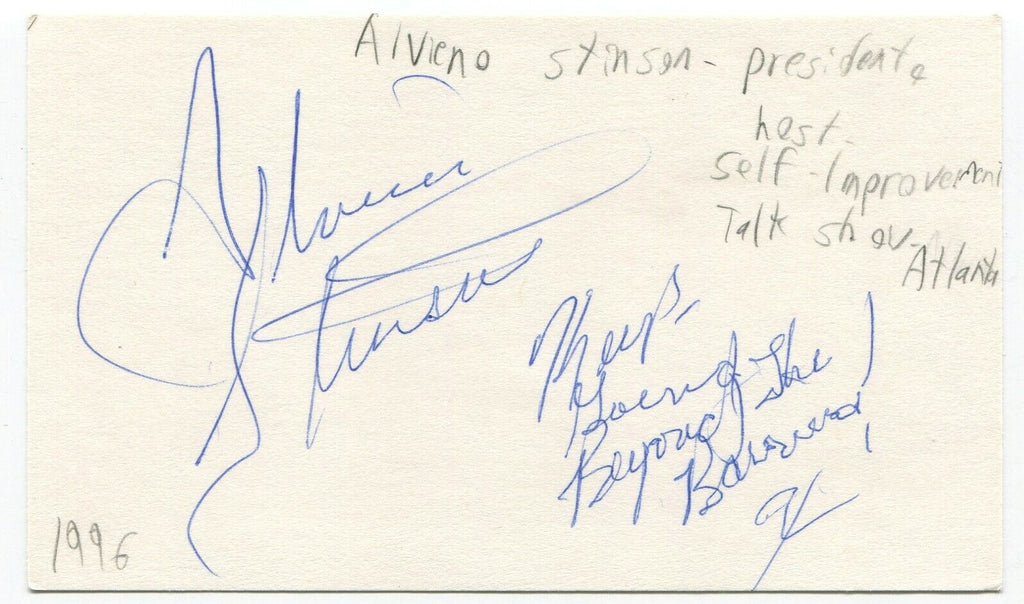 Alvieno Stinson - president &
host -
Self-Improvement
Talk show -
Atlanta
Alvieno
Stinson
Keep
Going
Beyond the
Barriers!
1996